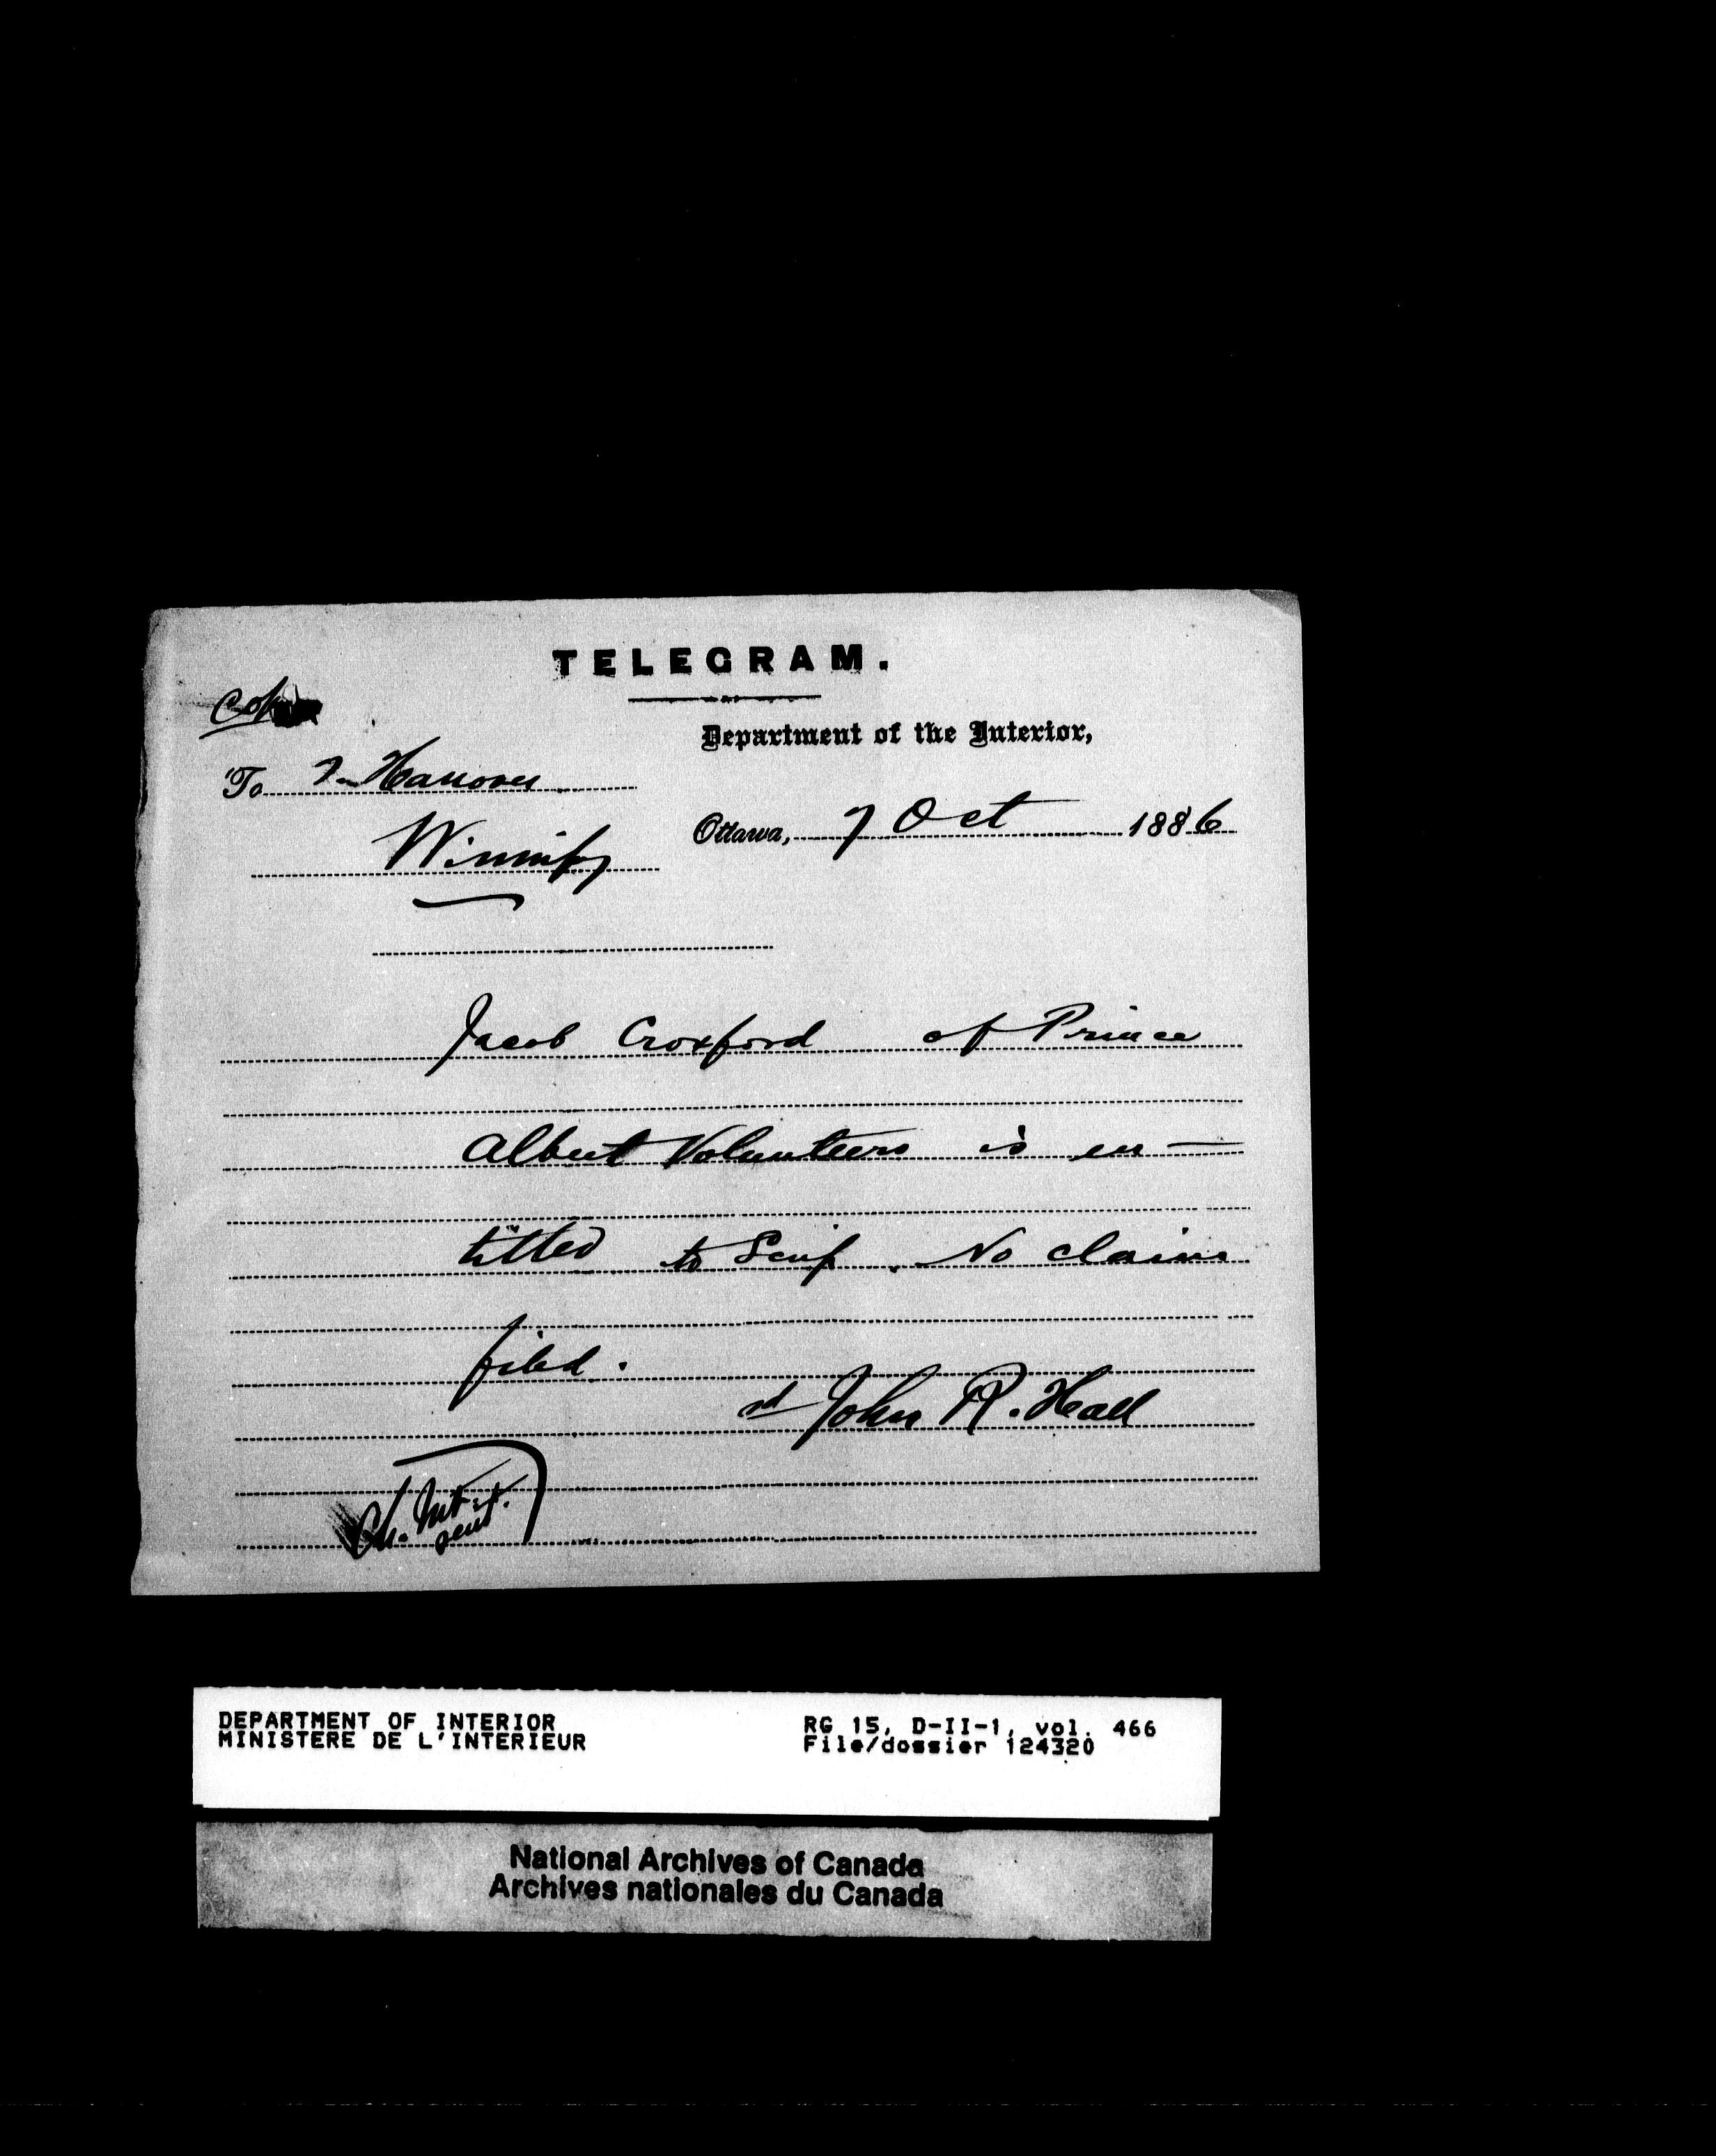 TELEGRAM.
Department of the Interior,
To Hanover
Winnipeg
Ottawa, 7 Oct 1886
Jacob Croxford of Prince
Albert Volunteers is en-
titled to Scrip. No claim
filed.
sd John R. Hall
DEPARTMENT OF INTERIOR
MINISTERE DE L'INTERIEUR
RG 15, D-II-1, vol. 466
File/dossier 124320
National Archives of Canada
Archives nationales du Canada